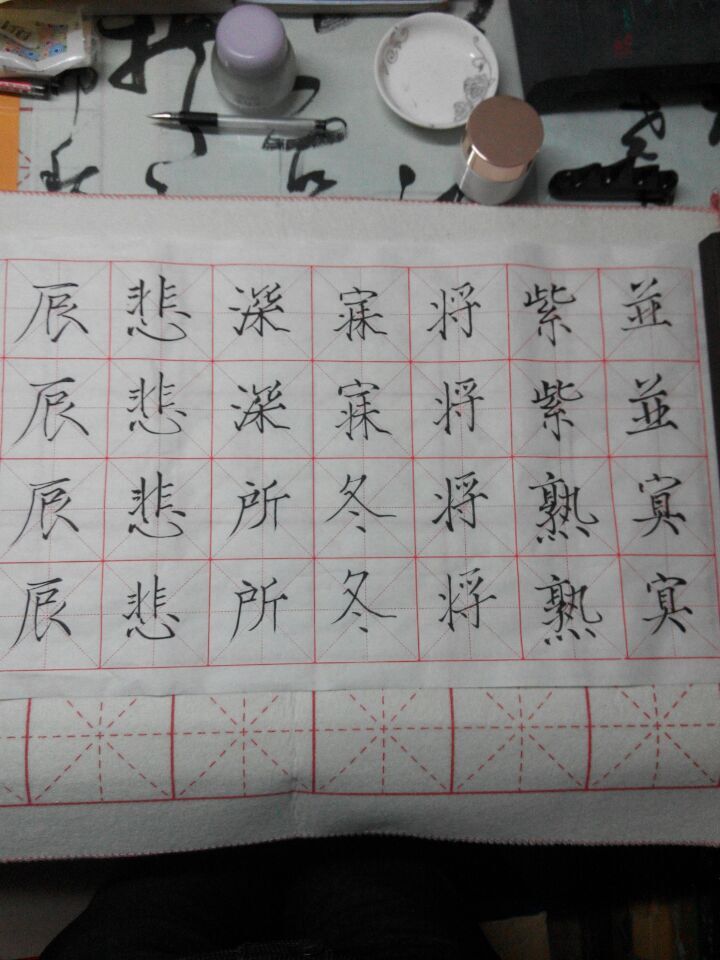 並並
紫紫熟熟
将将将将
寐寐冬冬
深深所所
悲悲悲悲
辰辰辰辰